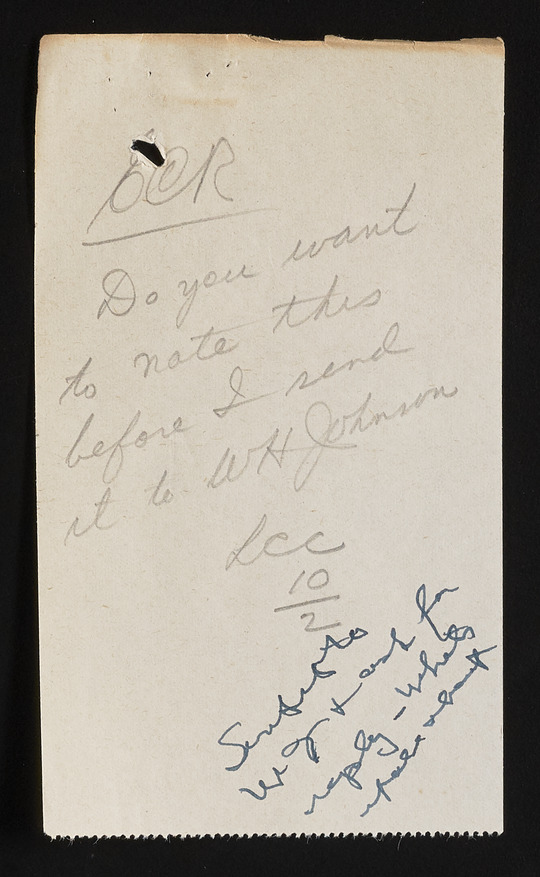 OCR
Do you want
to note this
before I send
it to WH Johnson
LCC
10
2
Send it to
W J & ask for
reply - Whats
about